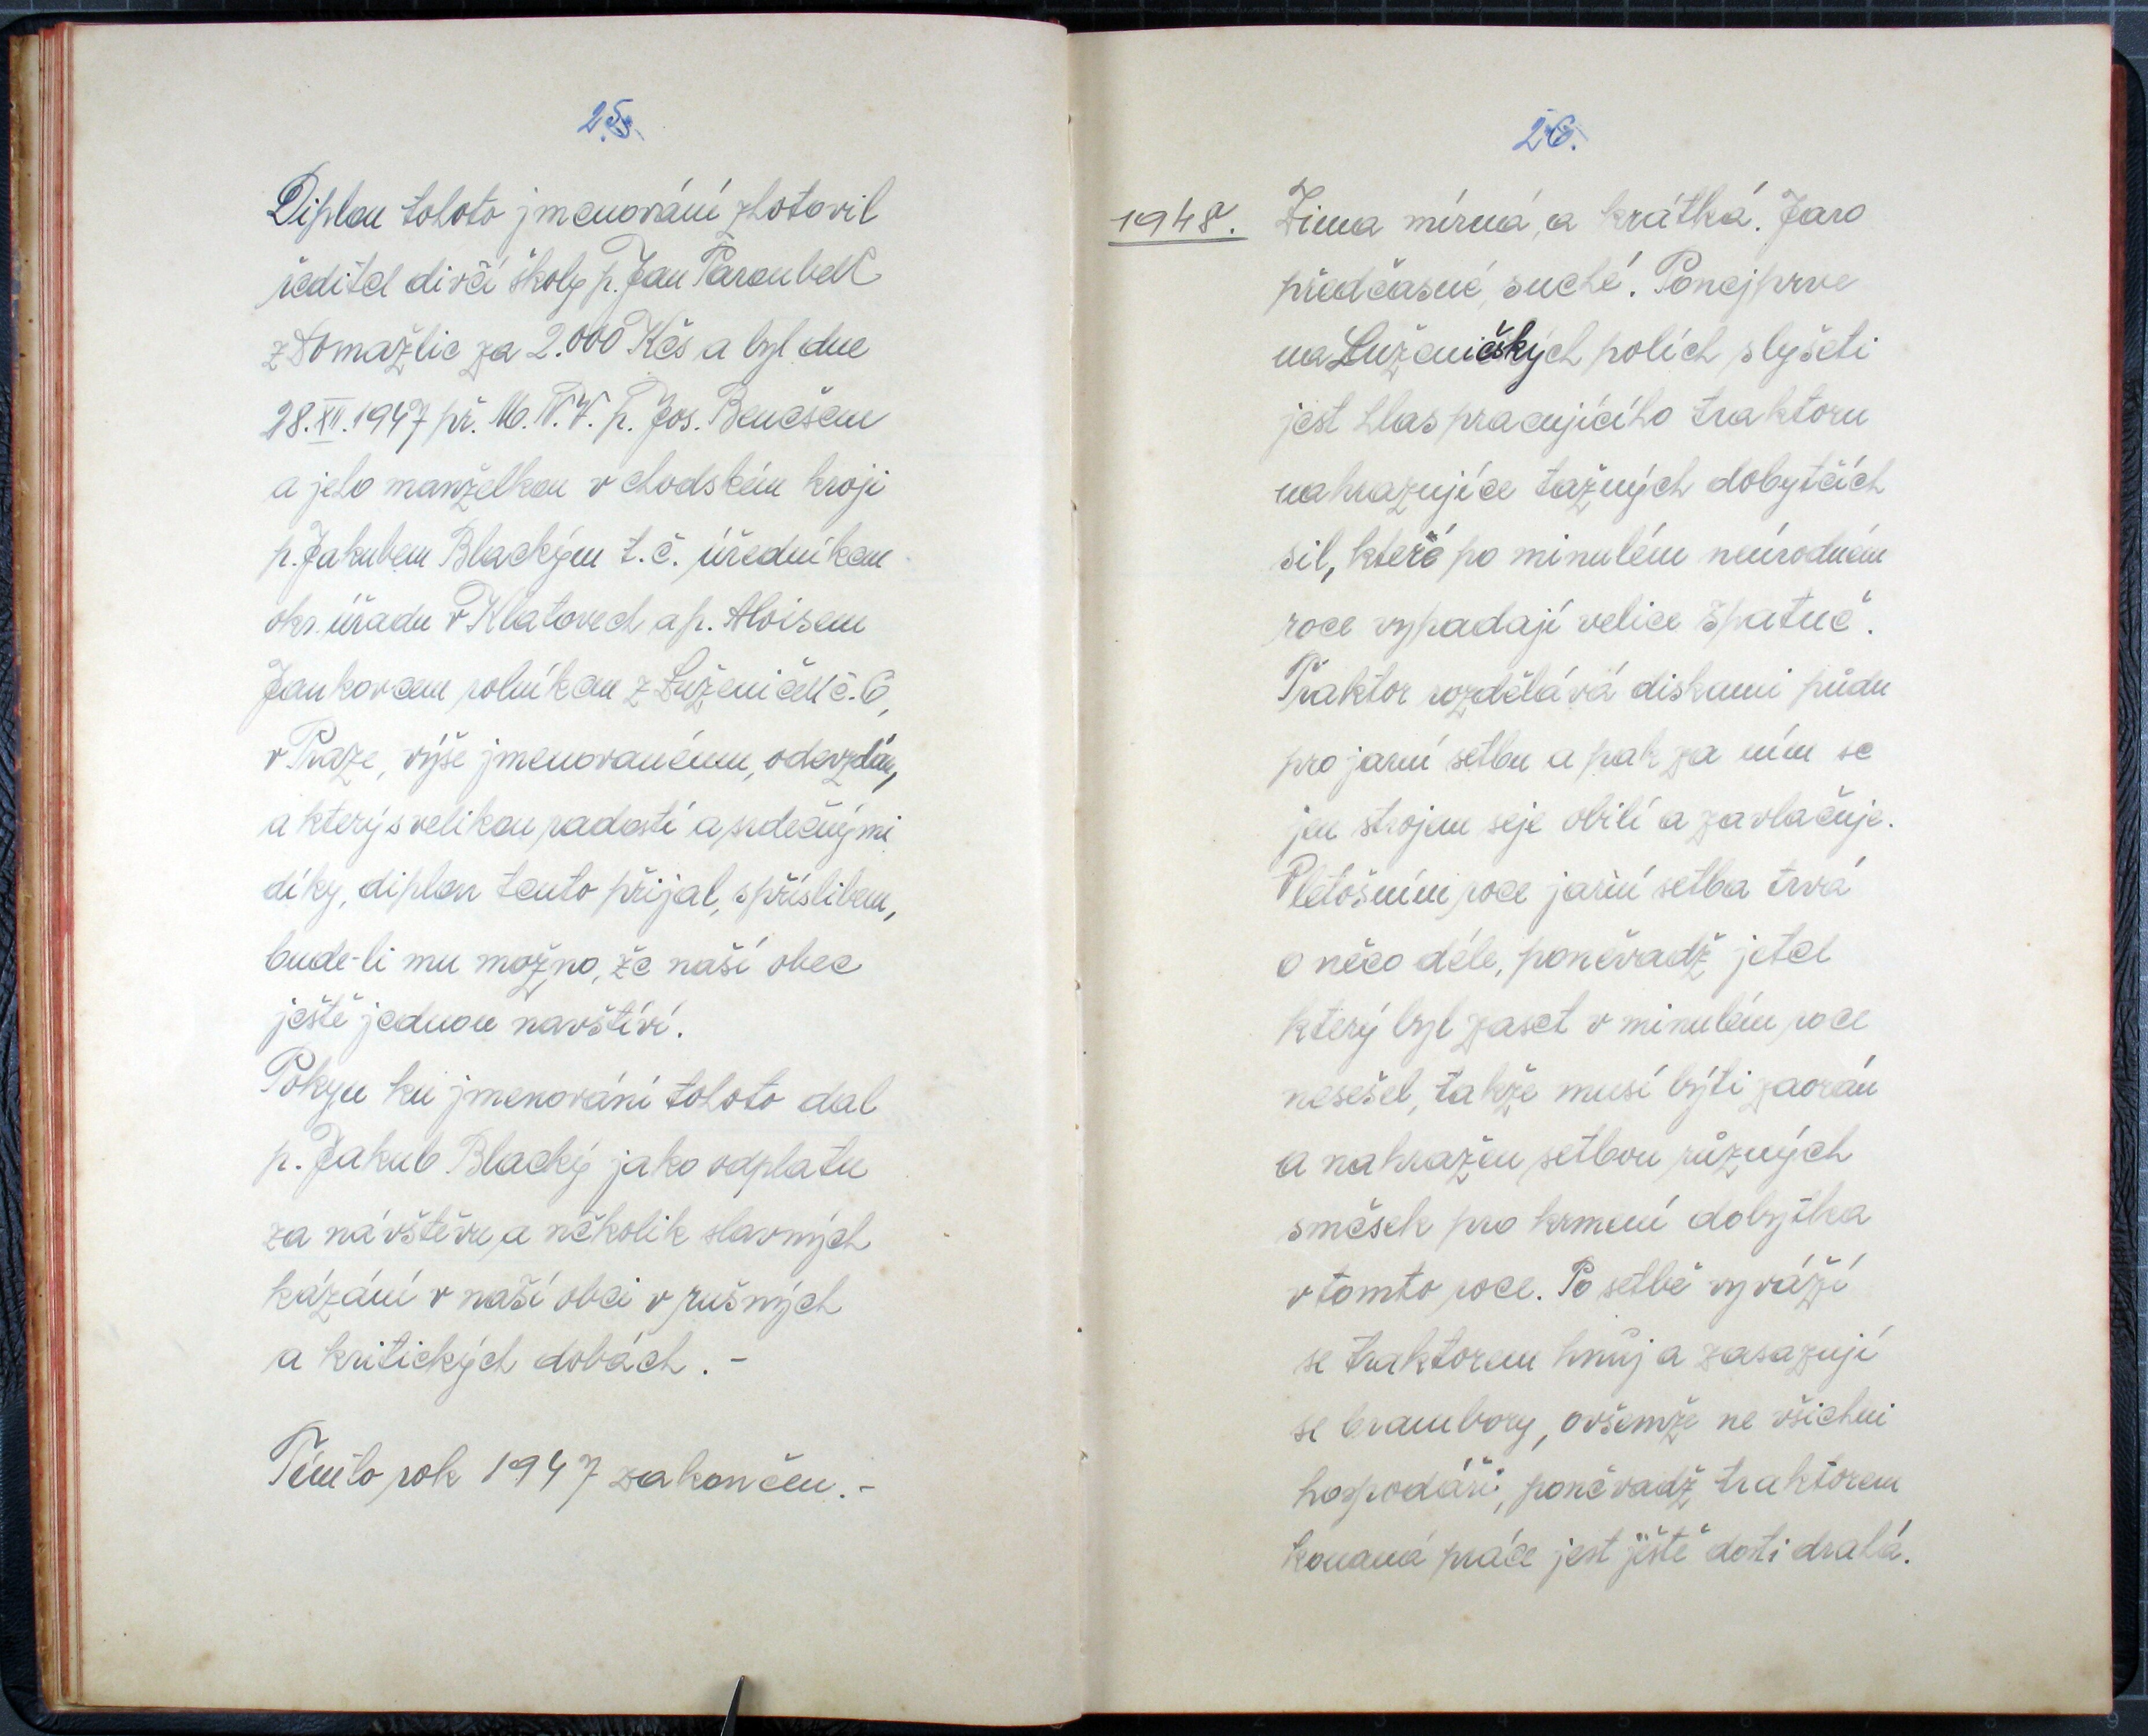 25.
Diplom tohoto jmenování zhotovil
ředitel dívčí školy p. Jan Paroubek
z Domažlic za 2.000 Kčs a byl dne
28.XII.1947 př. M.N.V. p. Jos. Benešem
a jeho manželkou v chodském kroji
p. Jakubem Blackým t.č. úředníkem
okr. úřadu v Klatovech a p. Aloisem
Jankovcem rolníkem z Luženiček č. 6,
v Praze, výše jmenovanému, odevzdán,
a který s velikou radostí a srdečnými
díky, diplom tento přijal, s příslibem,
bude-li mu možno, že naší obec
ještě jednou navštíví.
Pokyn ku jmenování tohoto dal
p. Jakub Blacký jako odplatu
za návštěvu a několik slavných
kázání v naší obci v rušných
a kritických dobách. -
Tímto rok 1947 zakončen. -
26.
1948. Zima mírná, a krátká. Jaro
předčasné, suché. Ponejprve
na Luženičských polích slyšeti
jest hlas pracujícího traktoru
nahrazujíce tažných dobytčích
sil, které po minulém neúrodném
roce vypadají velice špatně.
Traktor rozdělává diskami půdu
pro jarní setbu a pak za ním se
jen strojem seje obilí a zavlačuje.
V letošním roce jarní setba trvá
o něco déle, poněvadž jetel
který byl zaset v minulém roce
nesešel, takže musí býti zaorán
a nahražen setbou různých
směsek pro krmení dobytka
v tomto roce. Po setbě vyváží
se traktorem hnůj a zasazují
se brambory, ovšemže ne všichni
hospodáři, poněvadž traktorem
konaná práce jest ještě dosti drahá.